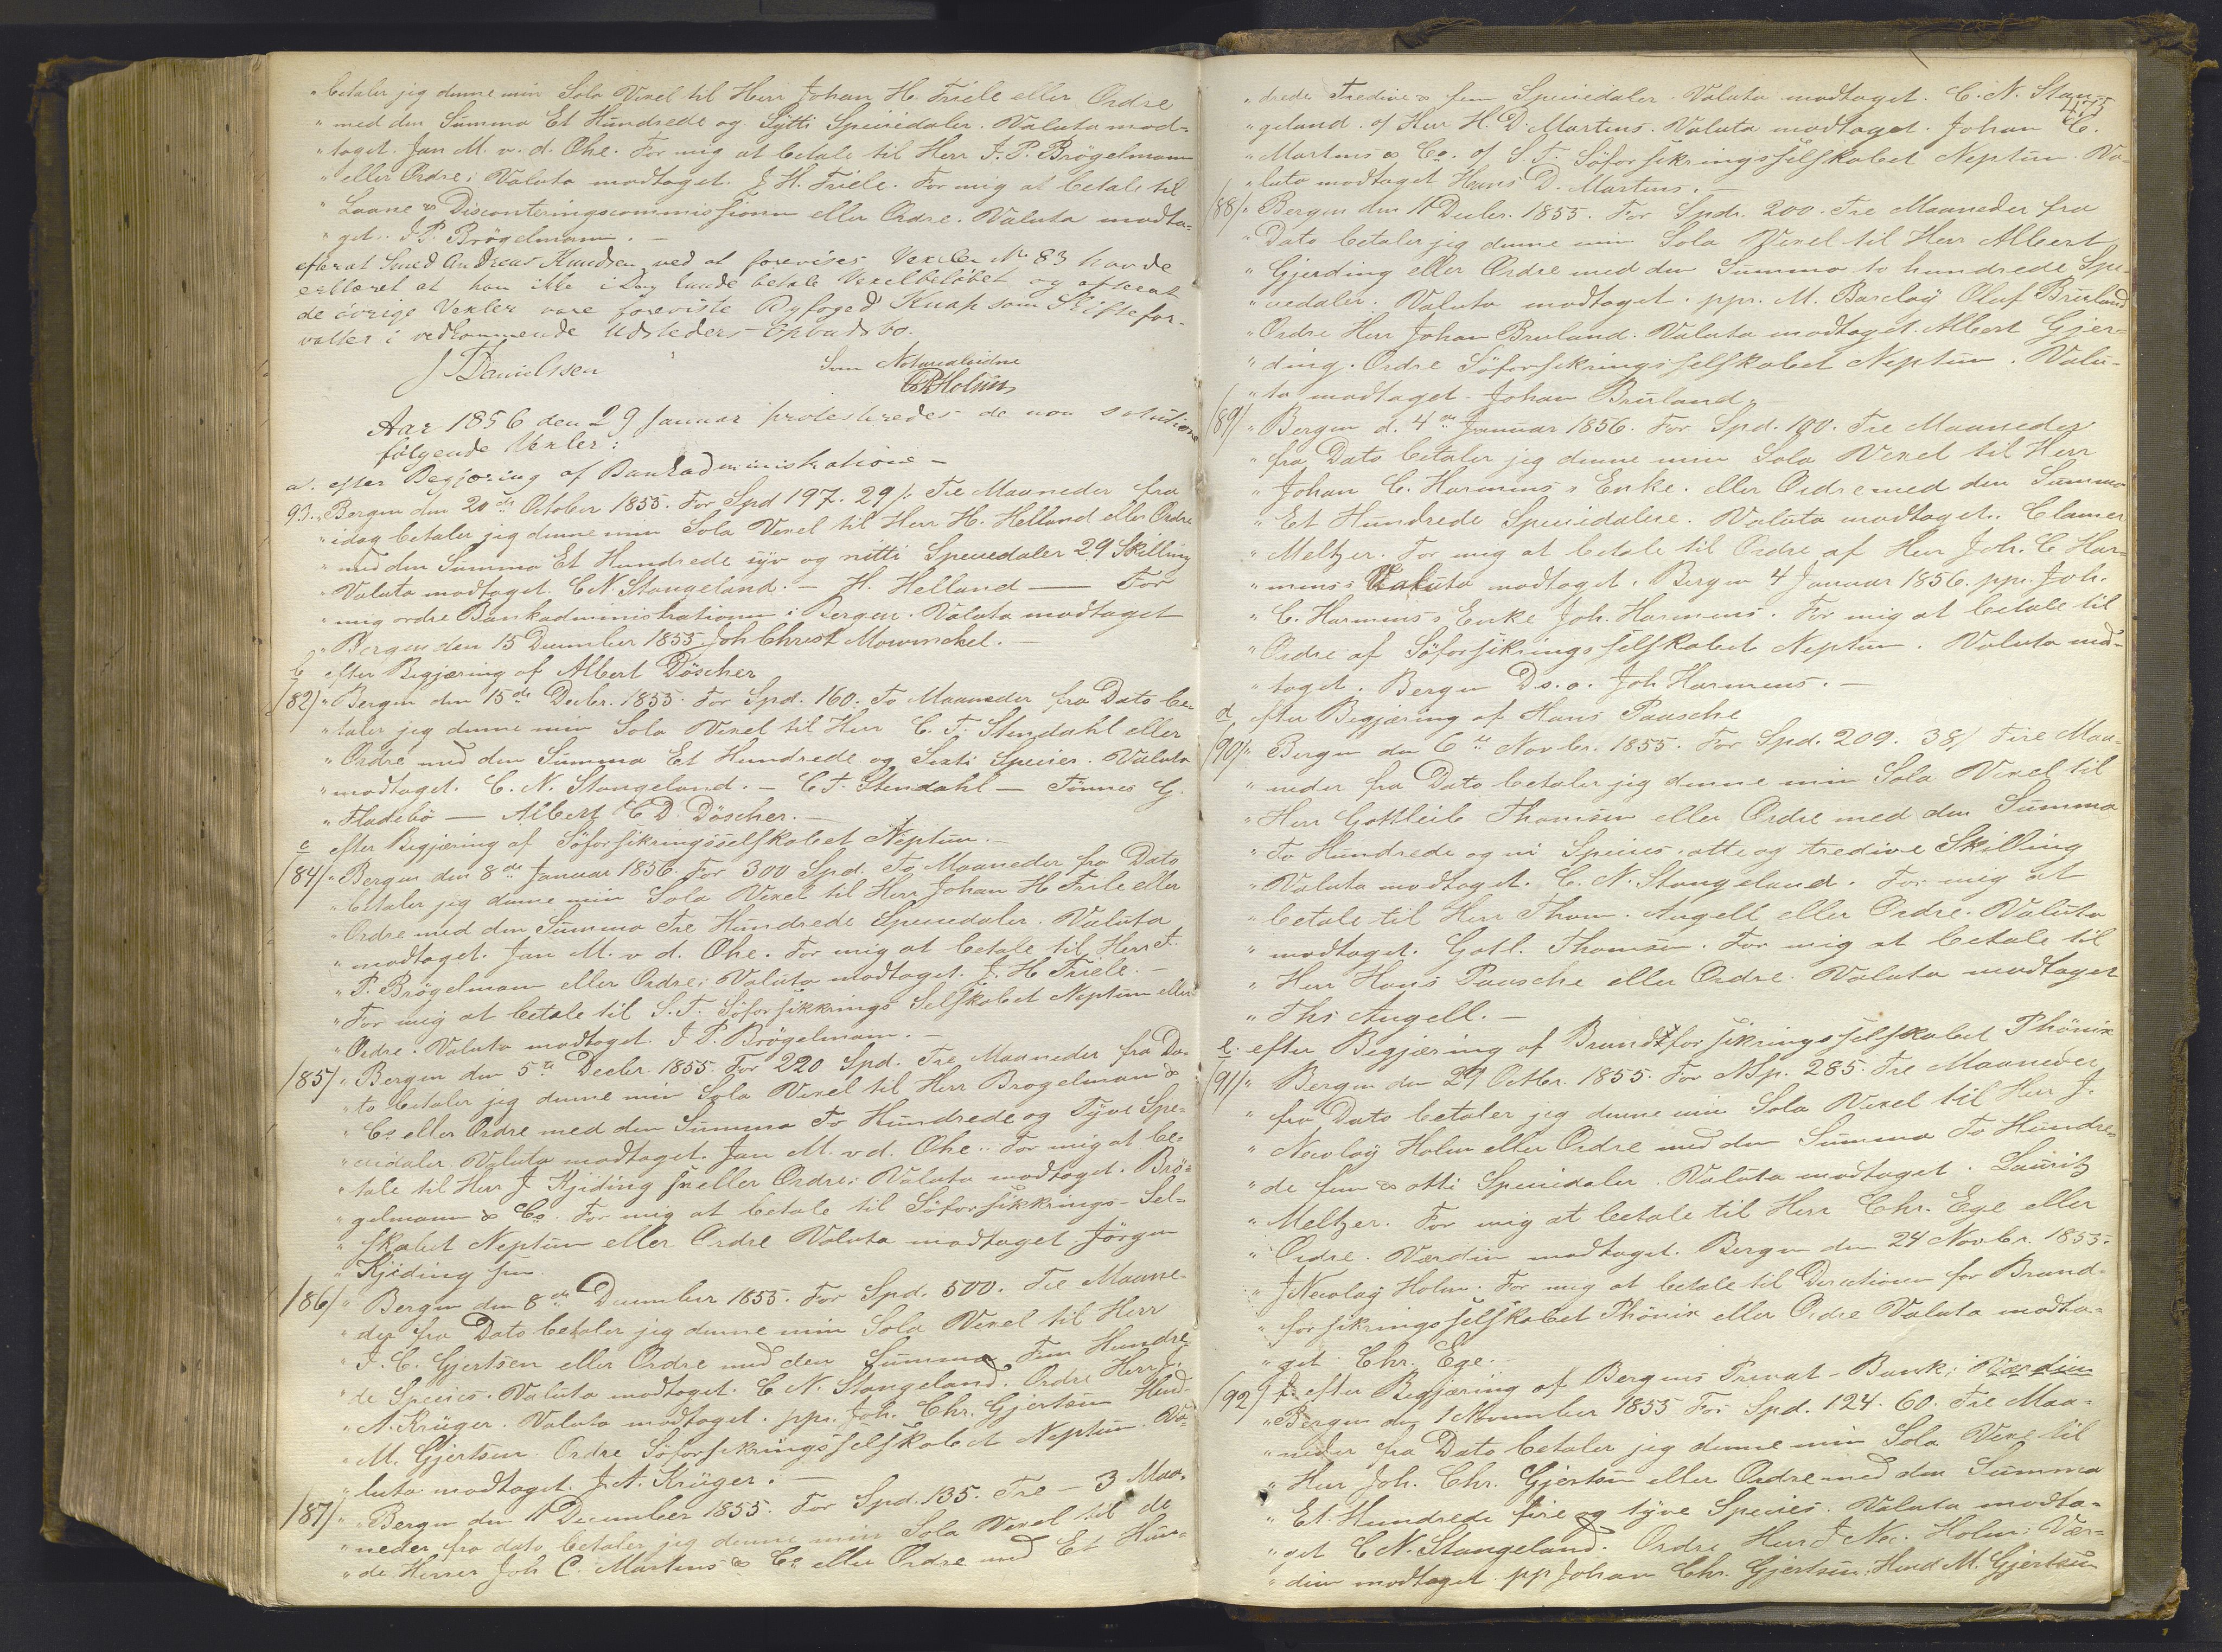 "betaler jeg denne min Sola Vexel til Herr Johan H. Friele eller Ordre
"med den Summa Et Hundrede og Sytti Speciedaler. Valuta mod=
"taget. Jan M. v. d. Ohe. For mig at betale til Herr J. P. Brögelmann
"eller Ordre; Valuta modtaget. J H. Friele. For mig at betale til
"Laane & Disconteringscommissionen eller Ordre. Valuta modta=
"get. J. P. Brögelmann. —
efterat Smed Andreas Knudsen ved at forevises Vexelen No 83 havde
erklæret at han ikke i Dag kunde betale Vexelbeløbet og efterat
de övrige Vexler vare foreviste Byfoged Knap som Skiftefor-
valter i vedkommende Udsteders Opbudsbo.
J Danielssen
Som Notarialvidne
Aar 1856 den 29 Januar protesteredes de non solutione
følgende Vexler:
a. efter Begjæring af Bankadministratione —
93. "Bergen den 20de October 1855. For Spd 197. 29 s. Tre Maaneder fra
"idag betaler jeg denne min Sola Vexel til Herr H. Helland eller Ordre
"med den Summa Et Hundrede syv og nitti Speciedaler 29 Skilling
"Valuta modtaget. C N. Stangeland. — H. Helland — For
"mig ordre Bankadministrationen i Bergen. Valuta modtaget
"Bergen den 15 December 1855 Joh Christ Mowinckel. —
b efter Begjæring af Albert Döscher
/82/ "Bergen den 15de Decbr. 1855. For Spd. 160. To Maaneder fra Dato be=
"taler jeg denne min Sola Vexel til Herr C. F. Stendahl eller
"Ordre med den Summa Et Hundrede og Sexti Species. Valuta
"modtaget. C. N. Stangeland. — C F. Stendahl — Tönnes G.
"Fladebö — Albert C D. Döscher. —
c efter Begjæring af Söforsikringsselskabet Neptun.
/84/ "Bergen den 8de Januar 1856. For 300 Spd. To Maaneder fra Dato
"betaler jeg denne min Sola Vexel til Herr Johan H Friele eller
"Ordre med den Summa Tre Hundrede Speciedaler. Valuta
"modtaget. Jan M. v d. Ohe. For mig at betale til Herr J.
"P. Brögelmann eller Ordre; Valuta modtaget. J. H Friele. —
"For mig at betale til S. T. Söforsikkrings Selskabet Neptun eller
"Ordre. Valuta modtaget. J P. Brögelmann. —
/85/ "Bergen den 5te Decbr. 1855. For 220 Spd. Tre Maaneder fra Da=
"to betaler jeg denne min Sola Vexel til Herr Brögelmann &
"Co eller Ordre med den Summa To Hundrede og Tyve Spe=
"ciedaler. Valuta modtaget. Jan M. v d. Ohe. For mig at be=
"tale til Herr J Kjeding sen eller Ordre; Valuta modtaget. Brö=
"gelmann & Co. For mig at betale til Söforsikkrings-Sel=
"skabet Neptun eller Ordre Valuta modtaget Jörgen
"Kjeding sen.
/86/ "Bergen den 8de December 1855. For Spd. 500. Tre Maane=
"der fra Dato betaler jeg denne min Sola Vexel til Herr
"J. C. Gjertsen eller Ordre med den Summa Fem Hundre
"de Species. Valuta modtaget. C N. Stangeland. Ordre Herr J.
"A. Krüger. Valuta modtaget. ppr. Joh. Chr. Gjertsen Hend=
"M. Gjertsen. Ordre Söforsikringsselskabet Neptun Va=
"luta modtaget. J. A. Krüger. —
/87/ "Bergen den 11 December 1855. For Spd. 135. Tre — 3 Maa=
"neder fra dato betaler jeg denne min Sola Vexel til de
"de Herrer Joh C. Martens & Co eller Ordre med Et Hun=
475
"drede Tredive & fem Speciedaler. Valuta modtaget. C. N. Stan=
"geland. of Herr H. D. Martens. Valuta modtaget. Johan C.
"Martens & Co. of S. T. Söforsikringsselskabet Neptun. Va=
"luta modtaget Hans D. Martens. —
/88/ "Bergen den 11 Decbr. 1855. For Spdr. 200. Tre Maaneder fra
"Dato betaler jeg denne min Sola Vexel til Herr Albert
"Gjerding eller Ordre med den Summa to hundrede Spe=
"ciedaler. Valuta modtaget. ppr. M. Barclay Oluf Bruland
"Ordre Herr Johan Bruland. Valuta modtaget. Albert Gjer=
"ding. Ordre Söforsikringsselskabet Neptun. Valu=
"ta modtaget. Johan Bruland. —
/89/ "Bergen d. 4de Januar 1856. For Spd. 100. Tre Maaneder
"fra Dato betaler jeg denne min Sola Vexel til Herr
"Johan C. Harmens's Enke. eller Ordre med den Summa
"Et Hundrede Speciedalere. Valuta modtaget. Clamer
"Meltzer. For mig at betale til Ordre af Herr Joh. C Har=
"mens's Valuta modtaget. Bergen 4 Januar 1856. ppr. Joh.
"C. Harmens's Enke Joh. Harmens. For mig at betale til
"Ordre af Söforsikringsselskabet Neptun. Valuta mod=
"taget. Bergen D. s. a. Joh Harmens. —
d efter Begjæring af Hans Paasche
/90/ "Bergen den 6te Novbr. 1855. For Spd. 209. 38 s. Tre Maa=
"neder fra Dato betaler jeg denne min Sola Vexel til
"Herr Gottleib Thomsen eller Ordre med den Summa
"To Hundrede og ni Species otte og tredive Skilling
"Valuta modtaget. C. N. Stangeland. For mig at
"betale til Herr Thom. Angell eller Ordre. Valuta
"modtaget. Gotl. Thomsen. For mig at betale til
"Herr Hans Paasche eller Ordre. Valuta modtaget
"Ths Angell. —
e. efter Begjæring af Brandforsikringsselskabet Phönix
/91/ "Bergen den 29 Octbr. 1855. For NSp. 285. Tre Maaneder
"fra Dato betaler jeg denne min Sola Vexel til Herr J.
"Nicolay Holm eller Ordre med den Summa To Hundre=
"de fem & otti Speciedaler. Valuta modtaget. Lauritz
"Meltzer. For mig at betale til Herr Chr. Ege eller
"Ordre. Værdien modtaget. Bergen den 24 Novbr. 1855.
"J Nicolay Holm. For mig at betale til Directionen for Brand=
"forsikringsselskabet Phönix eller Ordre Valuta modta=
"get Chr. Ege. —
/92/ f. efter Begjæring af Bergens Privat-Bank; Værdien
"Bergen den 1 November 1855 For Spd. 124. 60. Tre Maa=
"neder fra Dato betaler jeg denne min Sola Vexel til
"Herr Joh. Chr. Gjertsen eller Ordre med den Summa
"Et Hundrede fire og tyve Species. Valuta modta=
"get C N. Stangeland. Ordre Herr J Nic. Holm; Vær=
"dien modtaget pp Johan Chr. Gjertsen, Hend M. Gjertsen